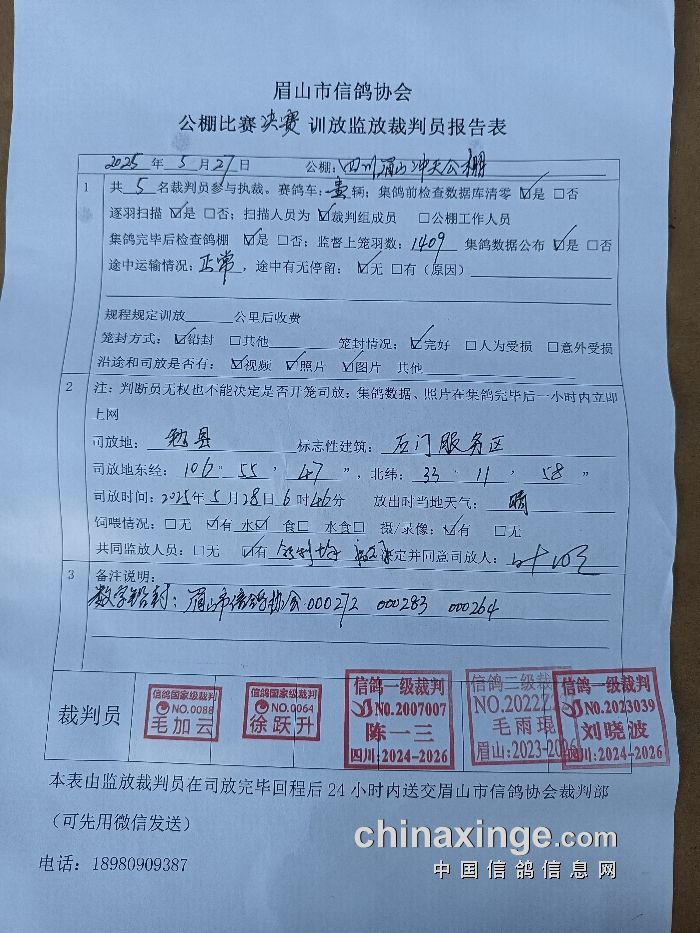 眉山市信鸽协会
公棚比赛决赛训放监放裁判员报告表
2025年5月27日 公棚：四川眉山冲天公棚
1 共5名裁判员参与执裁。赛鸽车：壹辆；集鸽前检查数据库清零 ☑是 □否
逐羽扫描 ☑是 □否；扫描人员为 ☑裁判组成员 □公棚工作人员
集鸽完毕后检查鸽棚 ☑是 □否；监督上笼羽数：1409 集鸽数据公布 ☑是 □否
途中运输情况：正常，途中有无停留：☑无 □有（原因）
规程规定训放____公里后收费
笼封方式：☑铅封 □其他 笼封情况：☑完好 □人为受损 □意外受损
沿途和司放是否有：☑视频 ☑照片 ☑图片 其他
2 注：判断员无权也不能决定是否开笼司放；集鸽数据、照片在集鸽完毕后一小时内立即
上网
司放地：勉县 标志性建筑：石门服务区
司放地东经：106°55′47″，北纬：33°11′58″
司放时间：2025年5月28日6时46分 放出时当地天气：晴
饲喂情况：□无 ☑有 水☑ 食□ 水食□ 摄/录像：☑有 □无
共同监放人员：□无 ☑有 定并同意司放人：
3 备注说明：
数字铅封：眉山市信鸽协会000272 000283 000264
裁判员
信鸽国家级裁判
NO.0088
毛加云
信鸽国家级裁判
NO.0064
徐跃升
信鸽一级裁判
NO.2007007
陈一三
四川:2024-2026
信鸽二级裁判
毛雨琨
眉山:2023-2026
信鸽一级裁判
NO.2023039
刘晓波
四川:2024-2026
本表由监放裁判员在司放完毕回程后24小时内送交眉山市信鸽协会裁判部
（可先用微信发送）
电话：18980909387
chinaxinge.com
中国信鸽信息网